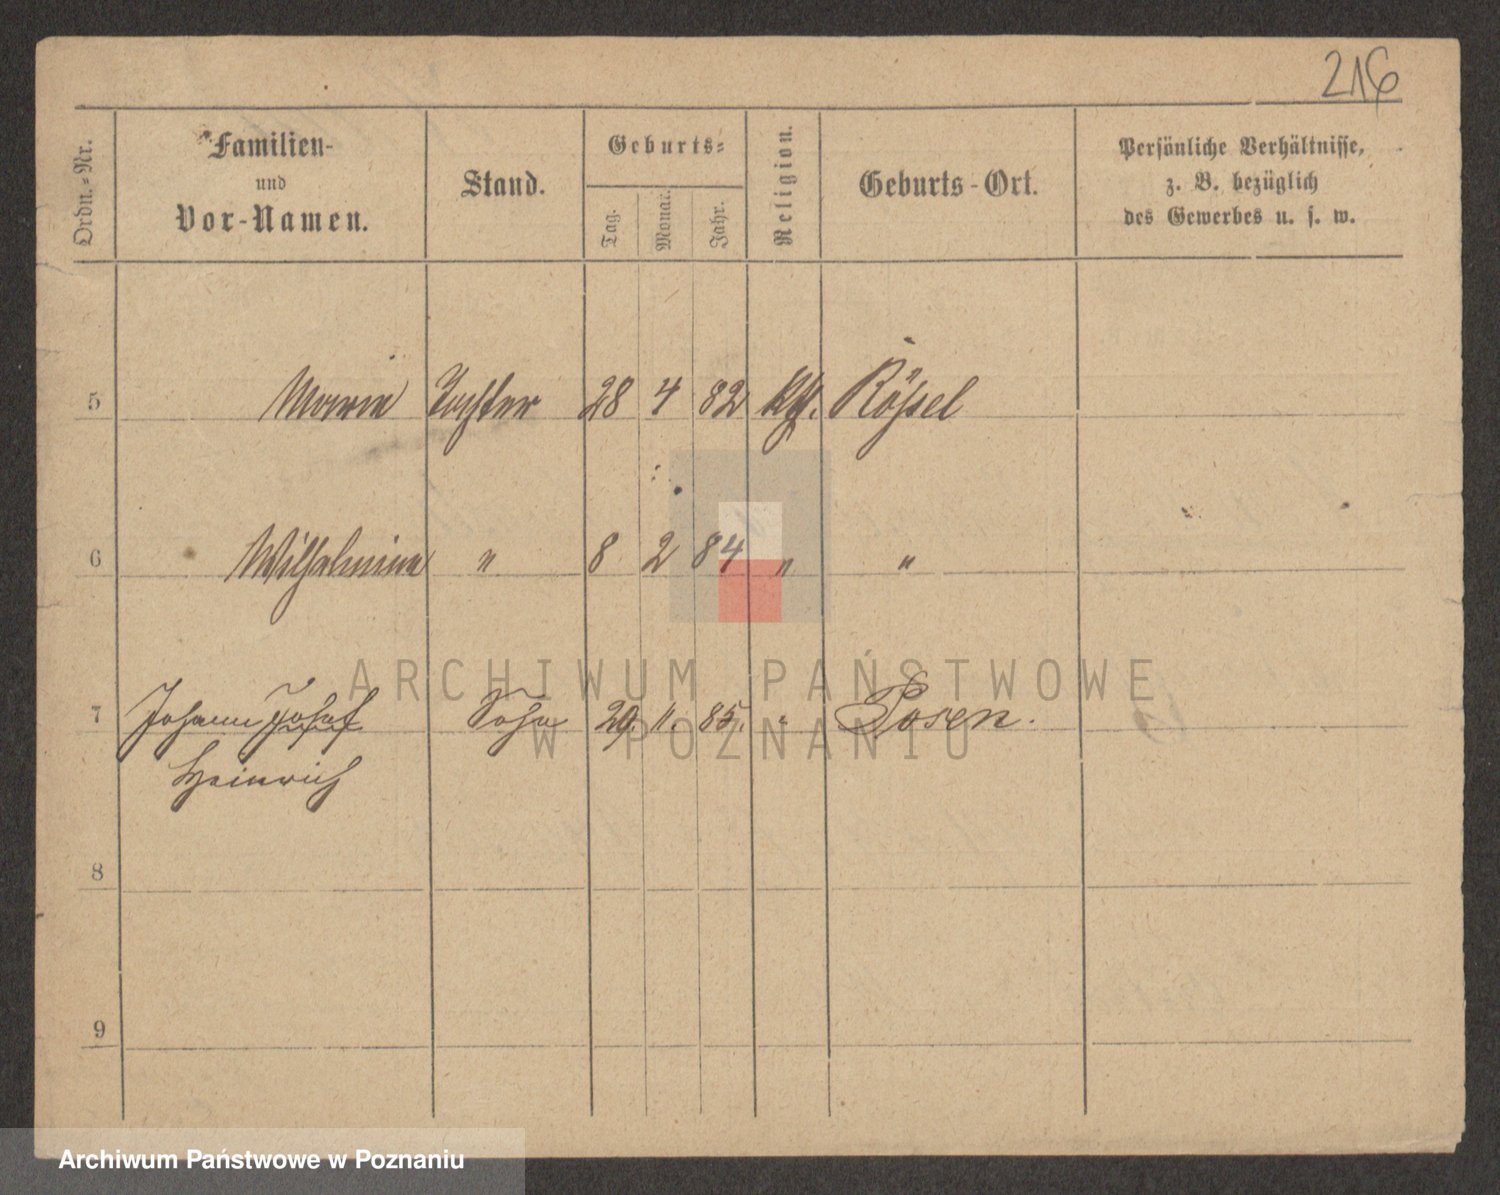 216
Ordn.-Nr.
Familien-
und
Vor-Namen.
Stand.
Geburts-
Tag.
Monat.
Jahr.
Religion.
Geburts-Ort.
Persönliche Verhältnisse,
z. B. bezüglich
des Gewerbes u. s. w.
5 Marie Tochter 28 4 82 kth. Rößel
6 Wilhelmine " 8 2 84 " "
7 Johann Josef Sohn 29. 11. 85. " Posen.
Heinrich
8
9
ARCHIWUM PAŃSTWOWE
W POZNANIU
Archiwum Państwowe w Poznaniu